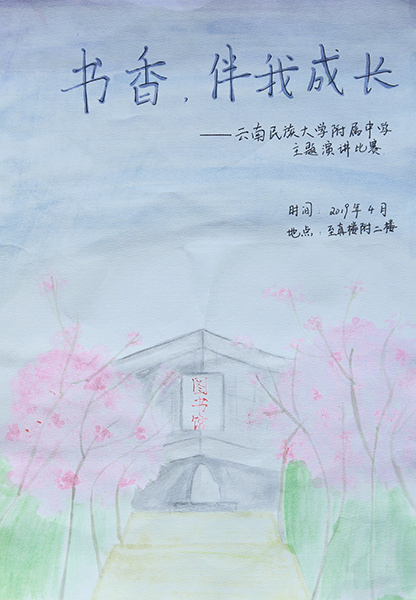 书香，伴我成长
——云南民族大学附属中学
主题演讲比赛
时间：2019年4月
地点：至真楼附二楼
图书馆